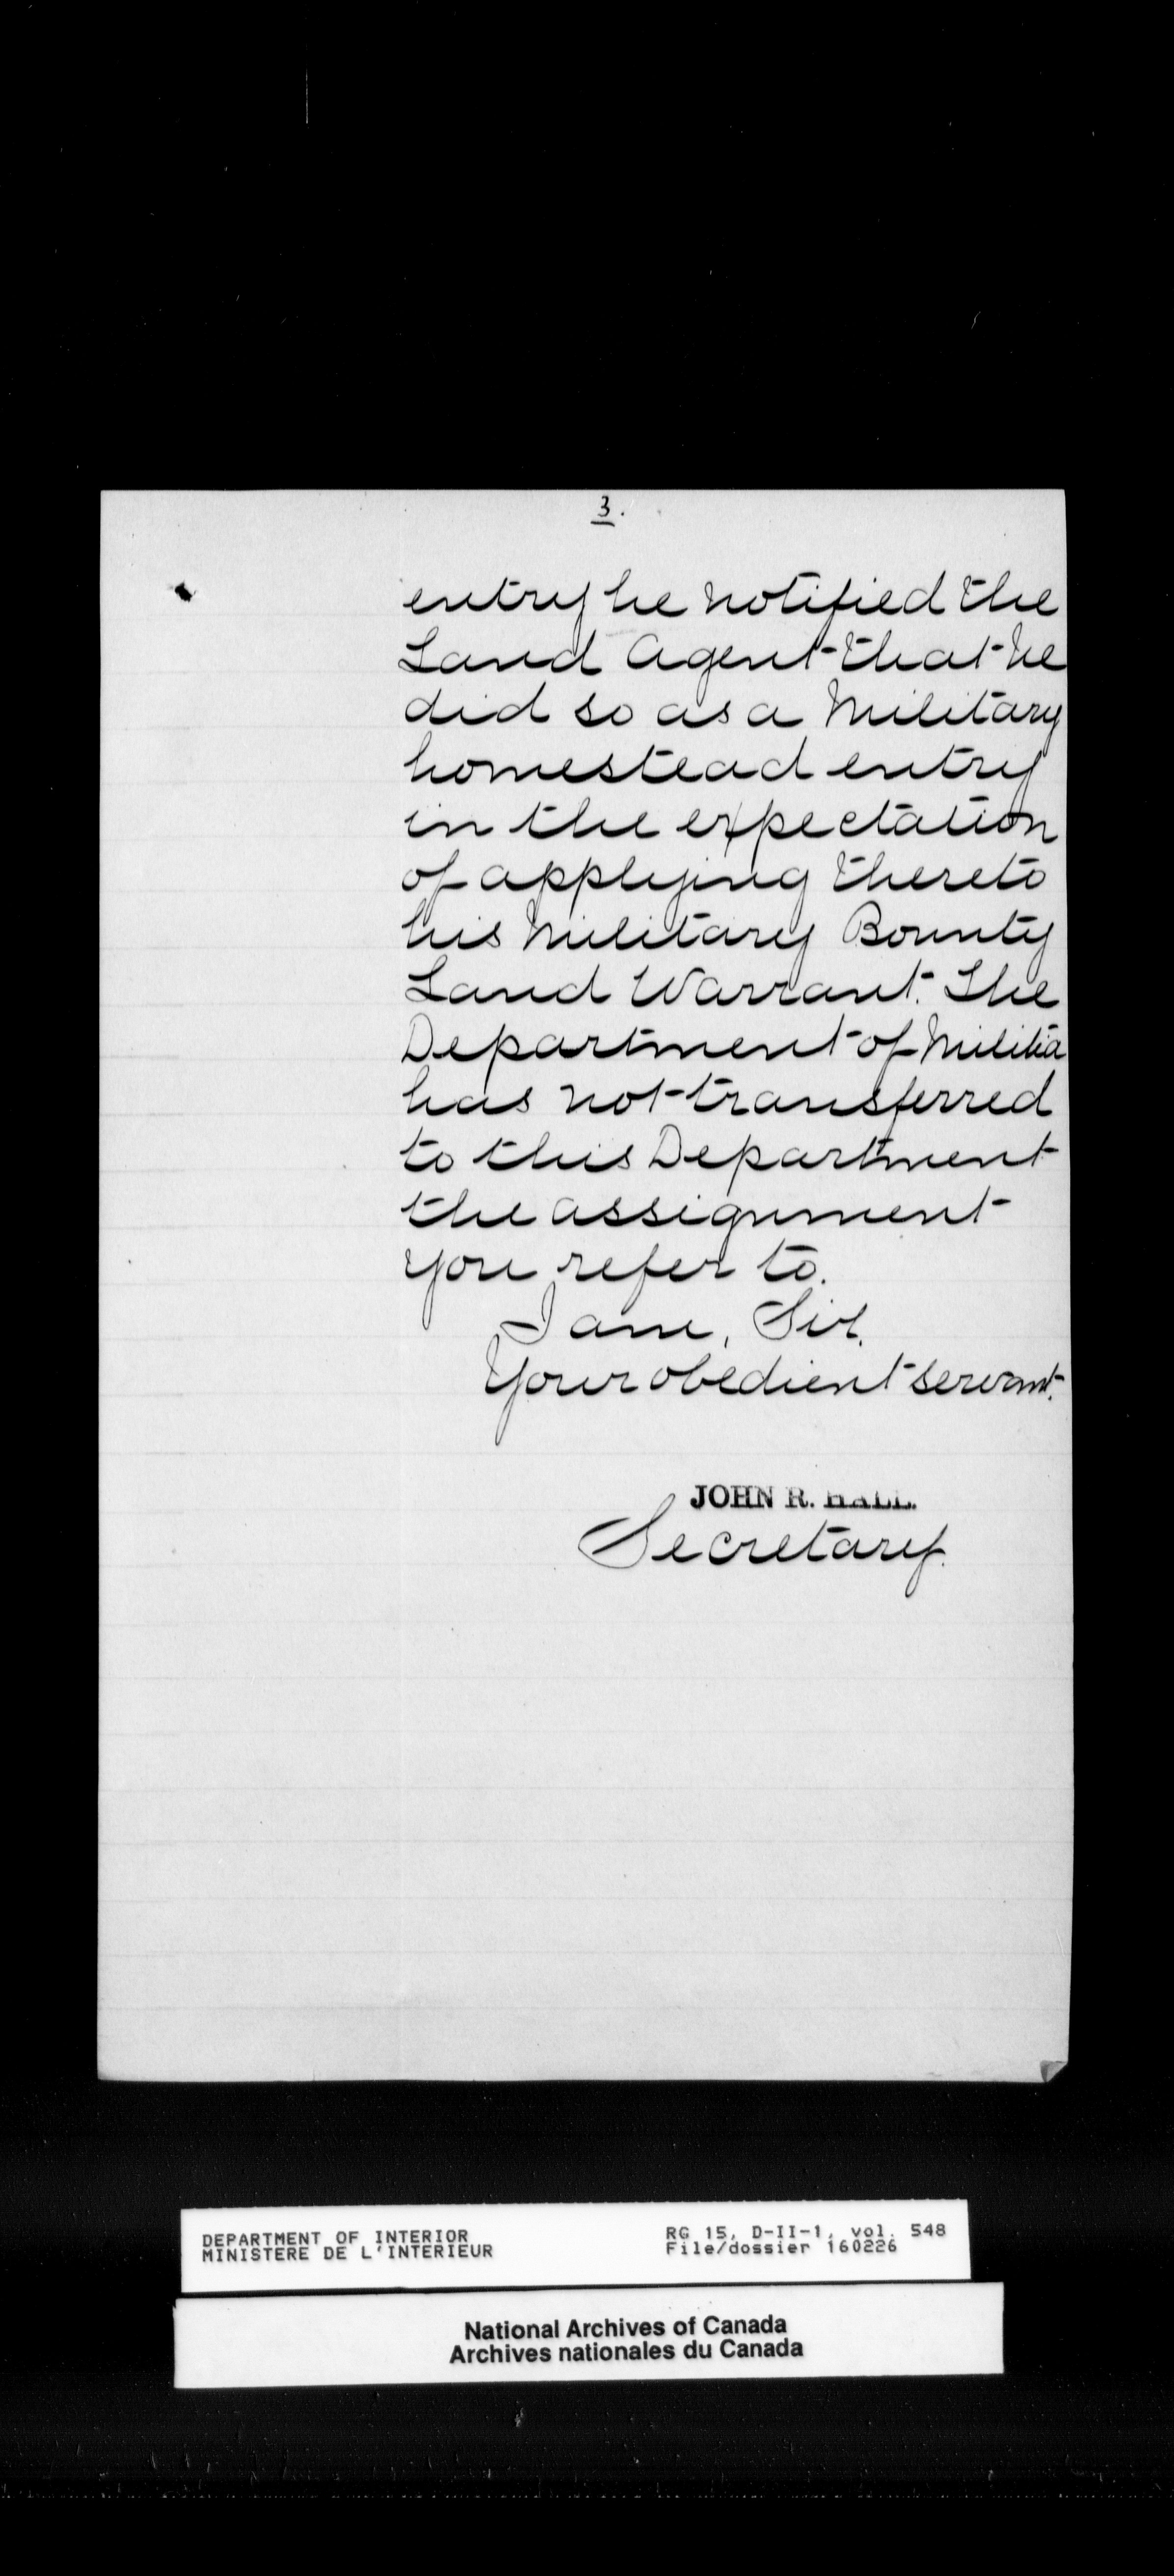 3.
entry he notified the
Land Agent that he
did so as a Military
homestead entry
in the expectation
of applying thereto
his Military Bounty
Land Warrant. The
Department of Militia
has not transferred
to this Department
the assignment
you refer to.
I am, Sir,
Your obedient servant.
JOHN R. HALL.
Secretary.
DEPARTMENT OF INTERIOR
MINISTERE DE L'INTERIEUR
RG 15, D-II-1, vol. 548
File/dossier 160226
National Archives of Canada
Archives nationales du Canada